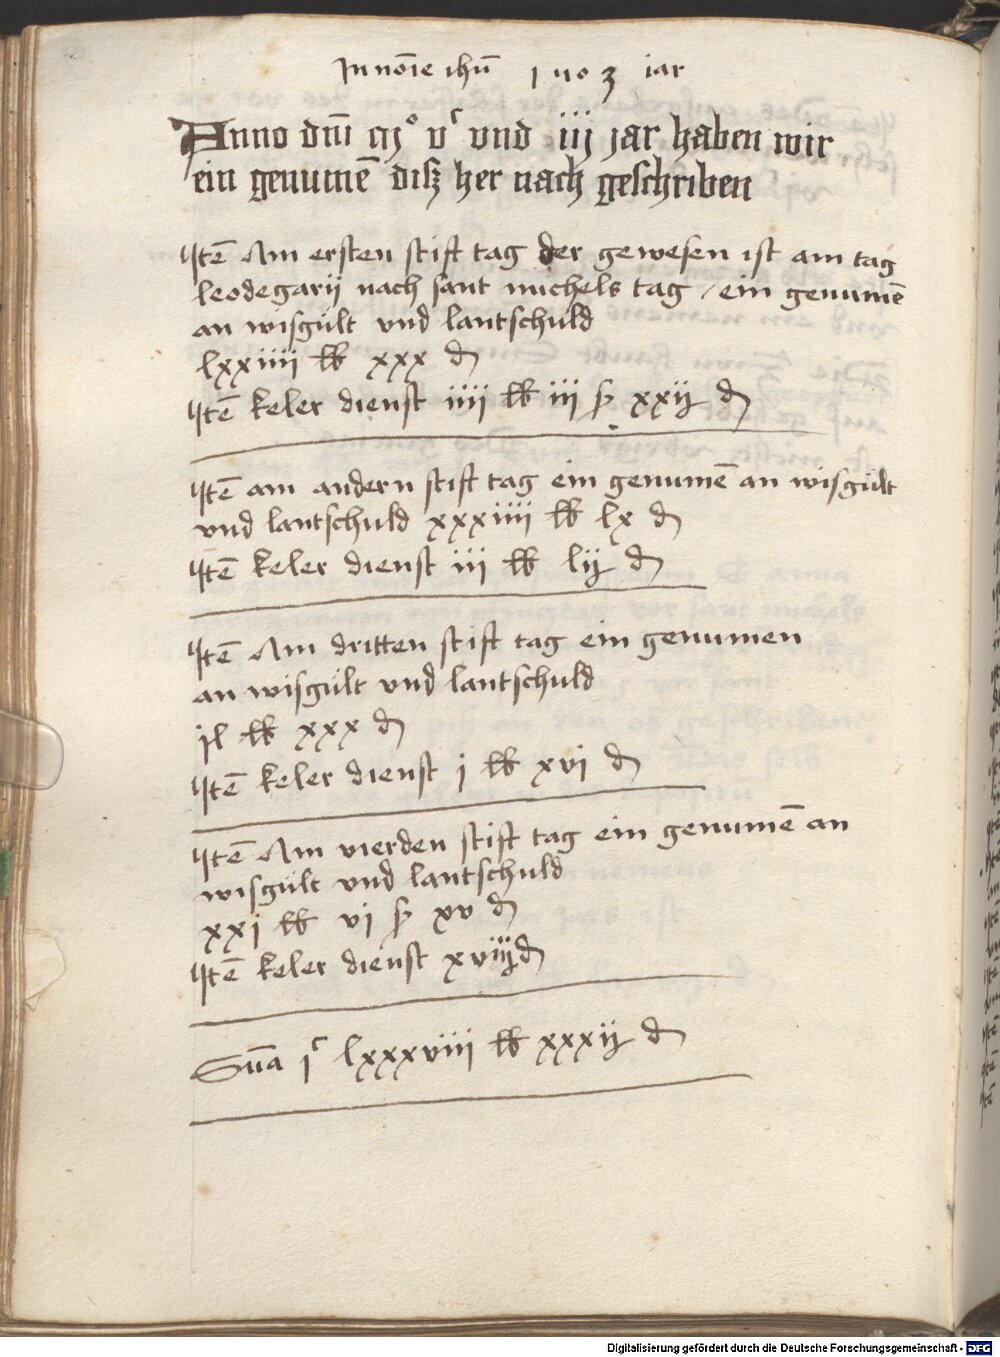 In noīe ihū 1503 iar
Anno dnī mᵒ vᶜ vnd iij jar haben wir
ein genumē disz her nach geschriben
Itē Am ersten stift tag der gewesen ist am tag
leodegarij nach sant michels tag / ein genumē
an wisgült vnd lantschuld
lxxiiii lb xxx d
Itē keler dienst iiii lb iii ß xxij d
Itē am andern stift tag ein genumē an wisgült
vnd lantschuld xxxiiii lb lx d
Itē keler dienst iii lb lij d
Itē Am dritten stift tag ein genumen
an wisgült vnd lantschuld
il lb xxx d
Itē keler dienst j lb xvi d
Itē Am vierden stift tag ein genumē an
wisgült vnd lantschuld
xxj lb vj ß xv d
Itē keler dienst xviiij d
Sūa jᶜ lxxxviii lb xxxij d
Digitalisierung gefördert durch die Deutsche Forschungsgemeinschaft - DFG